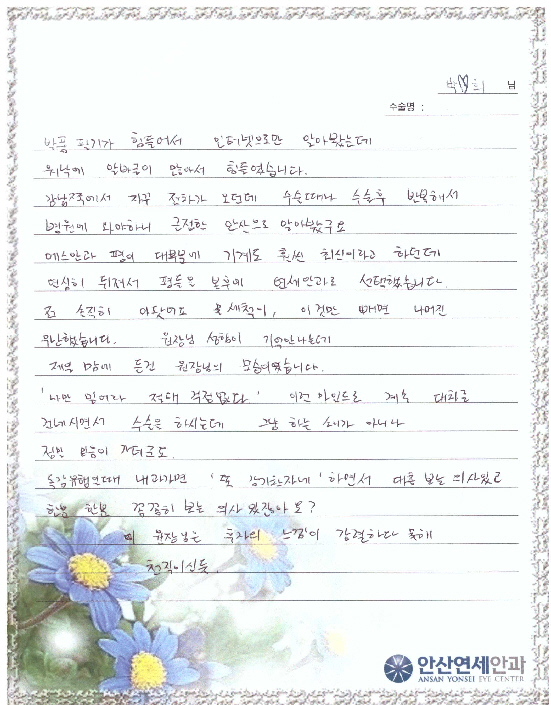 박♡희 님
수술명 :
발품 팔기가 힘들어서 인터넷으로만 알아봤는데
워낙에 알바글이 많아서 힘들었습니다.
강남쪽에서 자꾸 전화가 오던데 수술때나 수술후 반복해서
병원에 와야하니 근접한 안산으로 알아봤구요
평이 대폭에 기계도 훨씬 최신이라고 하던데
열심히 뒤져서 평들을 본후에 연세안과로 선택했습니다.
솔직히 아팠어요 눈세척이, 이것만 빼면 나머진
무난했습니다. 원장님 성함이 기억안나는데
제일 맘에 든건 원장님의 모습이었습니다.
'나만 믿어라 전혀 걱정없다' 이런 마인드로 계속 대화를
건네시면서 수술을 하시는데 그냥 하는 소리가 아니라
정말 믿음이 가더군요.
독감유행인때 내과가면 '또 감기환자네' 하면서 대충 보는 의사있고
한명 한명 꼼꼼히 보는 의사 있잖아요?
이 원장님은 후자의 느낌이 강렬하다 못해
천직이신듯.
안산연세안과
ANSAN YONSEI EYE CENTER